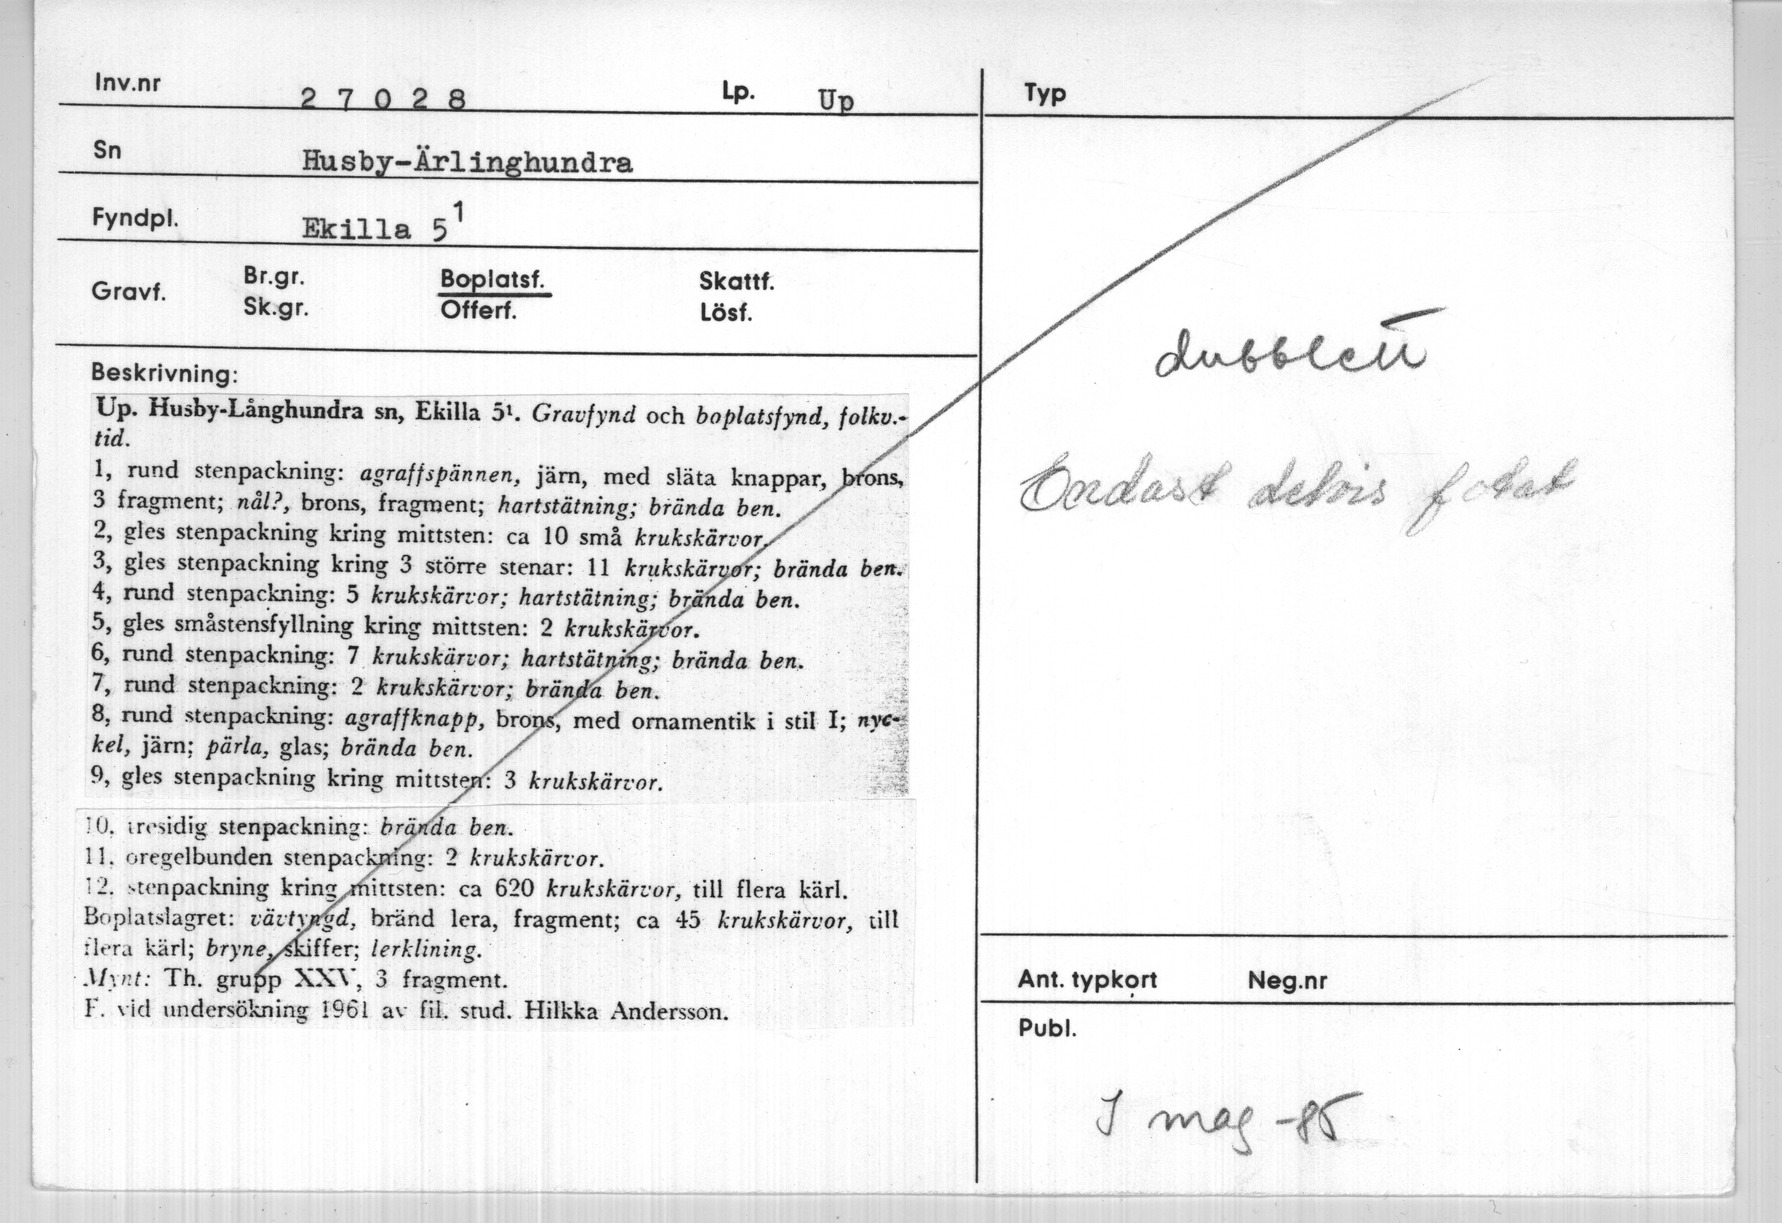 Inv.nr 27028 Lp. Up
Sn Husby-Ärlinghundra
Fyndpl. Ekilla 5¹
Gravf. Br.gr. Boplatsf. Skattf.
Sk.gr. Offerf. Lösf.
Beskrivning:
Up. Husby-Långhundra sn, Ekilla 5¹. Gravfynd och boplatsfynd, folkv.-
tid.
1, rund stenpackning: agraffspännen, järn, med släta knappar, brons,
3 fragment; nål?, brons, fragment; hartstätning; brända ben.
2, gles stenpackning kring mittsten: ca 10 små krukskärvor.
3, gles stenpackning kring 3 större stenar: 11 krukskärvor; brända ben.
4, rund stenpackning: 5 krukskärvor; hartstätning; brända ben.
5, gles småstensfyllning kring mittsten: 2 krukskärvor.
6, rund stenpackning: 7 krukskärvor; hartstätning; brända ben.
7, rund stenpackning: 2 krukskärvor; brända ben.
8, rund stenpackning: agraffknapp, brons, med ornamentik i stil I; nyc-
kel, järn; pärla, glas; brända ben.
9, gles stenpackning kring mittsten: 3 krukskärvor.
10. tresidig stenpackning: brända ben.
11. oregelbunden stenpackning: 2 krukskärvor.
12. stenpackning kring mittsten: ca 620 krukskärvor, till flera kärl.
Boplatslagret: vävtyngd, bränd lera, fragment; ca 45 krukskärvor, till
flera kärl; bryne, skiffer; lerklining.
Mynt: Th. grupp XXV, 3 fragment.
F. vid undersökning 1961 av fil. stud. Hilkka Andersson.
Typ
dubblett
Endast delvis fotat
Ant. typkort Neg.nr
Publ.
I mag -85